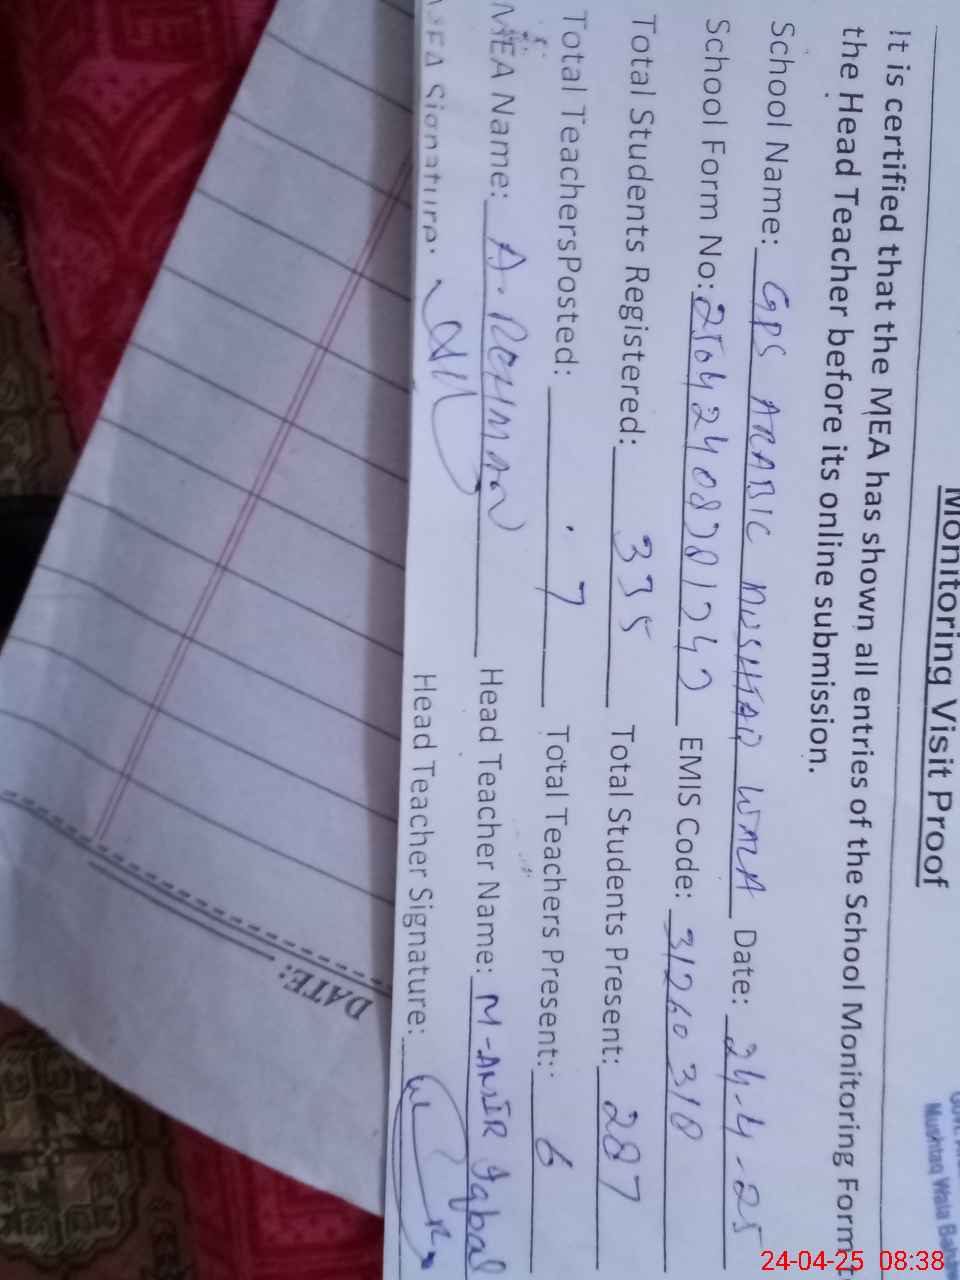 Monitoring Visit Proof
Mushtaq Wala
It is certified that the MEA has shown all entries of the School Monitoring Form t
the Head Teacher before its online submission.
School Name: GPS ARABIC MUSHTAQ WALA Date: 24-4-25
School Form No: EMIS Code: 31260310
Total Students Registered: 335 Total Students Present: 287
Total TeachersPosted: 7 Total Teachers Present: 6
MEA Name: A. REHMAN Head Teacher Name: M-AMIR Iqbal
MEA Signature: Head Teacher Signature:
DATE:
24-04-25 08:38